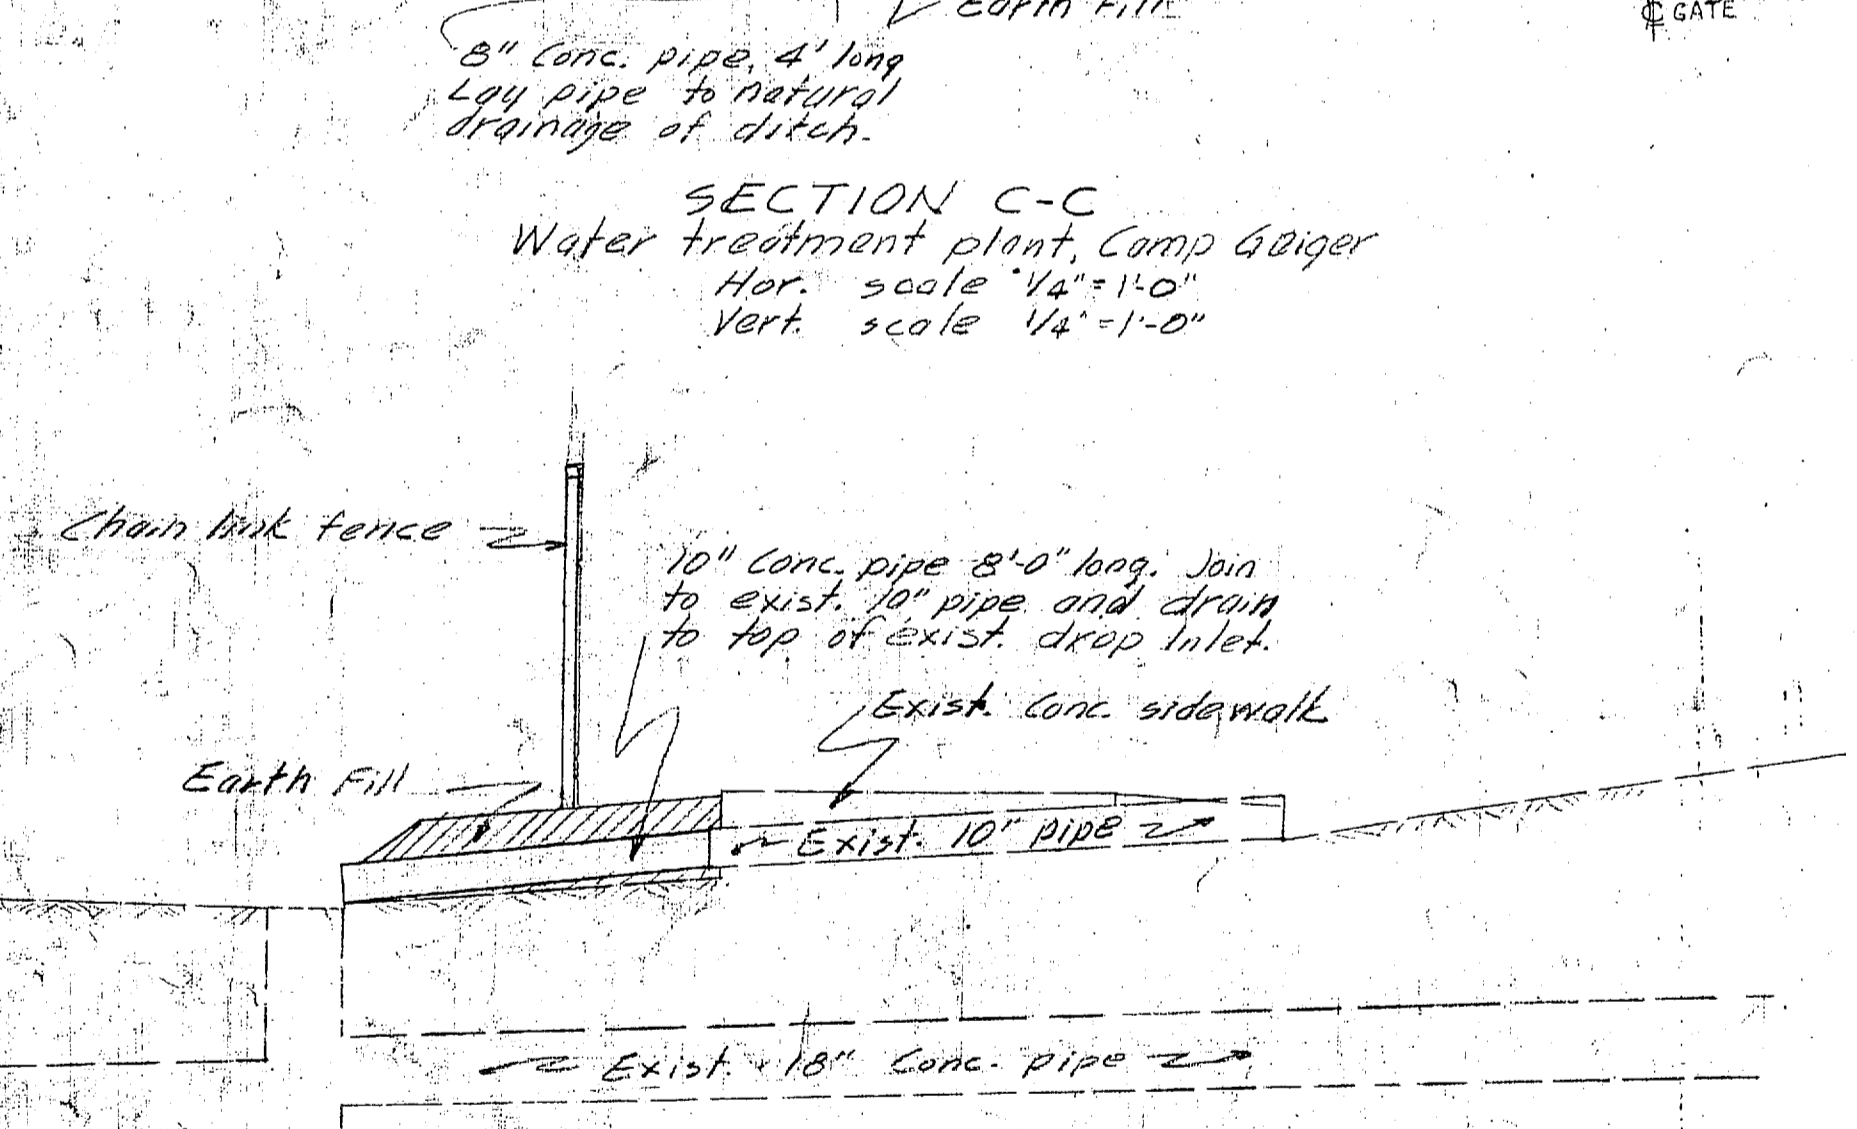 Earth Fill
℄ GATE
8" Conc. pipe, 4' long
Lay pipe to natural
drainage of ditch.
SECTION C-C
Water treatment plant, Camp Geiger
Hor. scale 1/4" = 1'-0"
Vert. scale 1/4" = 1'-0"
Chain link fence
10" Conc. pipe 8'-0" long. Join
to exist. 10" pipe and drain
to top of exist. drop Inlet.
Exist. Conc. sidewalk
Earth Fill
Exist. 10" pipe
Exist. 18" Conc. pipe